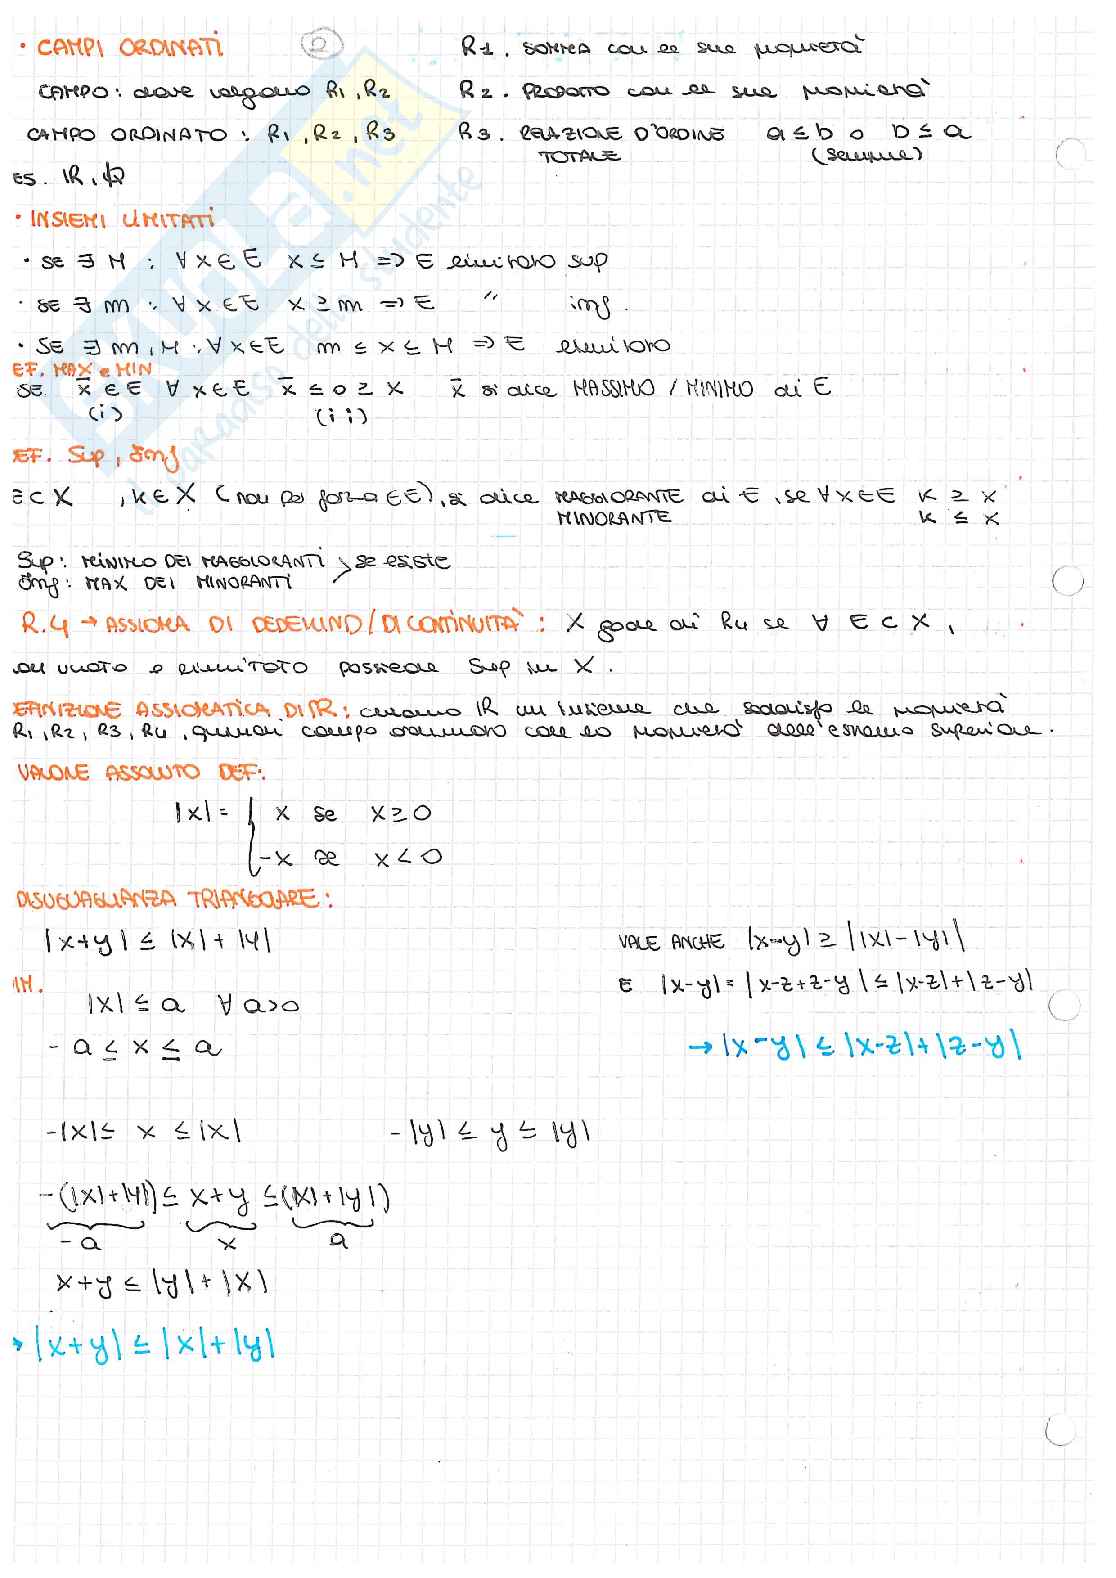 • CAMPI ORDINATI
2
CAMPO: dove valgono R1, R2
CAMPO ORDINATO: R1, R2, R3
ES. ℝ, ℚ
R1. SOMMA con le sue proprietà
R2. PRODOTTO con le sue proprietà
R3. RELAZIONE D'ORDINE a ≤ b o b ≤ a
TOTALE (sempre)
• INSIEMI LIMITATI
• SE ∃ M : ∀ x ∈ E x ≤ M => E limitato sup
• SE ∃ m : ∀ x ∈ E x ≥ m => E " inf.
• SE ∃ m, M : ∀ x ∈ E m ≤ x ≤ M => E limitato
EF. MAX e MIN
SE x̄ ∈ E ∀ x ∈ E x̄ ≤ o ≥ x x̄ si dice MASSIMO / MINIMO di E
(i) (ii)
EF. Sup, Inf
E ⊂ X , k ∈ X (non per forza ∈ E), si dice MAGGIORANTE di E, se ∀ x ∈ E k ≥ x
MINORANTE k ≤ x
Sup: MINIMO DEI MAGGIORANTI > se esiste
Inf: MAX DEI MINORANTI
R.4 → ASSIOMA DI DEDEKIND/DI CONTINUITÀ: X gode di R4 se ∀ E ⊂ X,
vuoto e limitato possiede Sup in X.
EFINIZIONE ASSIOMATICA DI ℝ: ℝ un insieme che soddisfa le proprietà
R1, R2, R3, R4, quindi campo ordinato con la proprietà dell'estremo superiore.
VALORE ASSOLUTO DEF:
|x| = { x se x ≥ 0
-x se x < 0
DISUGUAGLIANZA TRIANGOLARE:
|x+y| ≤ |x| + |y|
VALE ANCHE |x-y| ≥ ||x| - |y||
E |x-y| = |x-z+z-y| ≤ |x-z| + |z-y|
→ |x-y| ≤ |x-z| + |z-y|
IM.
|x| ≤ a ∀ a>0
-a ≤ x ≤ a
-|x| ≤ x ≤ |x| -|y| ≤ y ≤ |y|
-(|x|+|y|) ≤ x+y ≤ (|x|+|y|)
-a x a
x+y ≤ |y| + |x|
→ |x+y| ≤ |x| + |y|